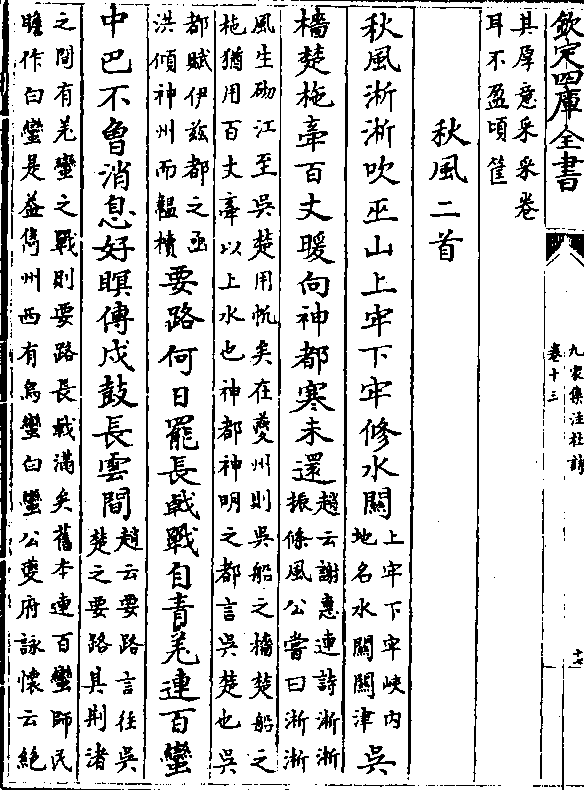 欽定四庫全書
九家集注杜詩
卷十三
其厚意采采卷
耳不盈頃筐
秋風二首
秋風淅淅吹巫山上牢下牢修水關
上牢下牢峽内
地名水關關津
吳
檣楚柂牽百丈暖向神都寒未還
趙云謝惠連詩淅淅
振條風公嘗曰淅淅
風生砌江至吳楚用帆矣在夔州則吳船之檣楚船之
柂猶用百丈牽以上水也神都神明之都言吳楚也吳
都賦伊兹都之函
洪傾神州而韞櫝
要路何日罷長戟戰自青羌連百蠻
中巴不曾消息好暝傳戍鼓長雲間
趙云要路言往吳
楚之要路其荆渚
之間有羌蠻之戰則要路長戟滿矣舊本連百蠻師民
瞻作白蠻是益儁州西有烏蠻白蠻公夔府詠懷云絶